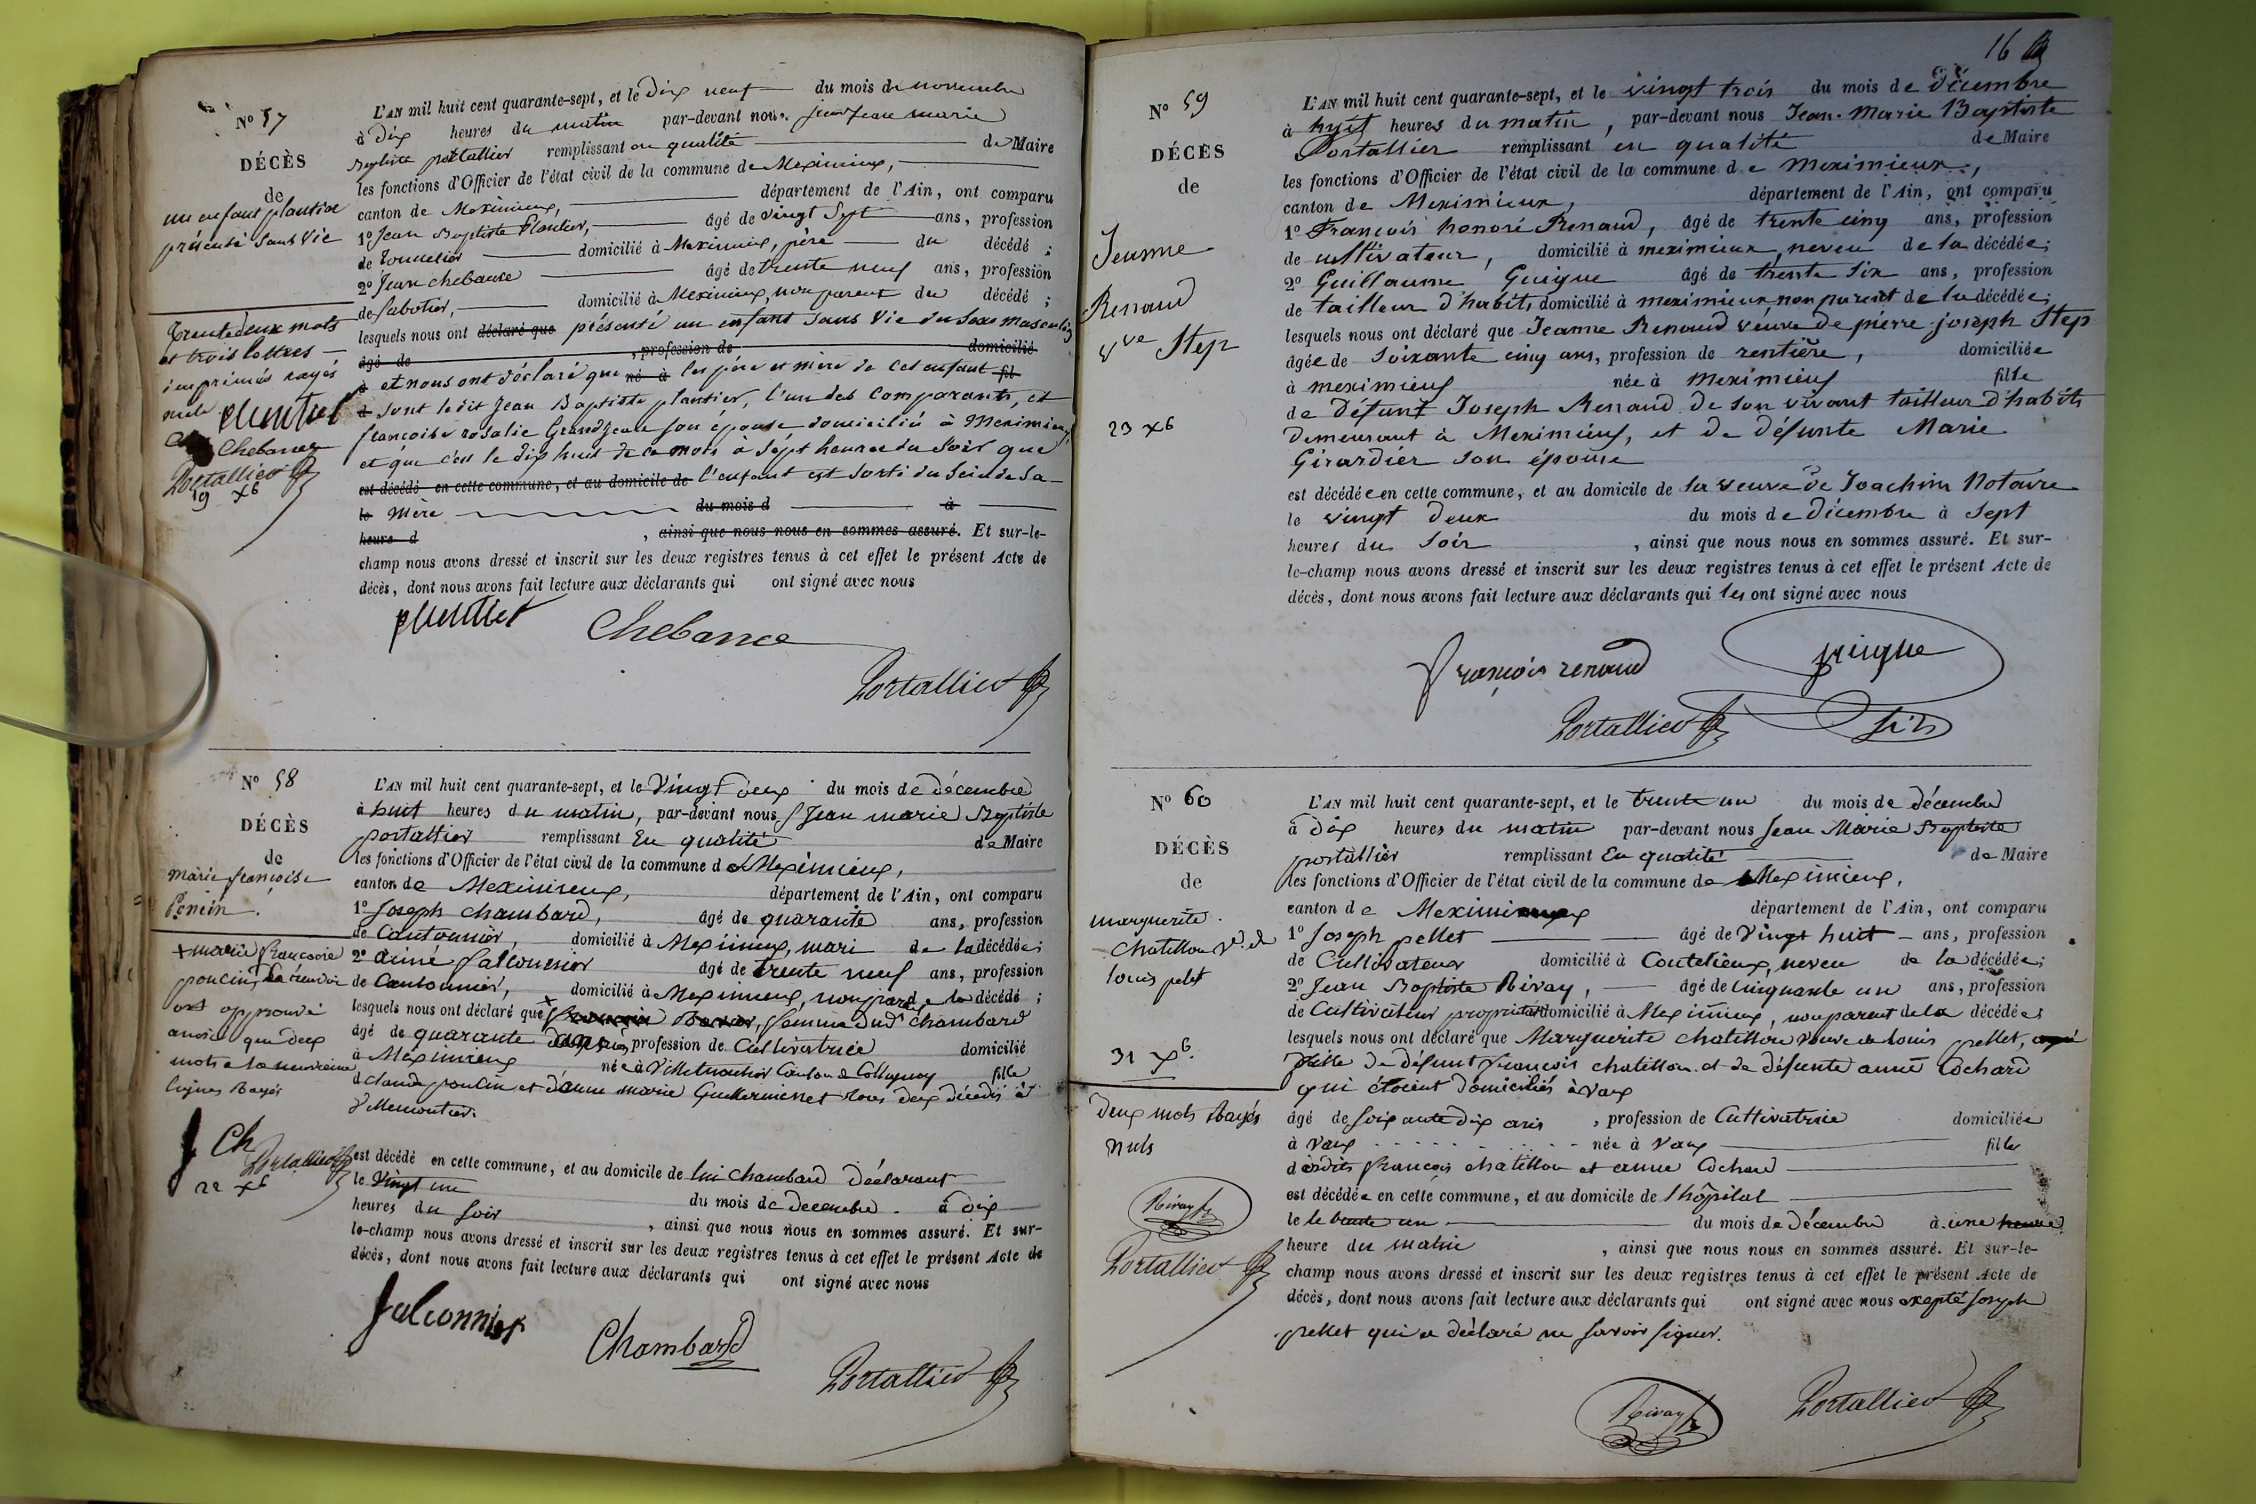 N° 57
DÉCÈS
de
un enfant plantier
présenté sans vie
trente deux mots
et trois lettres
imprimés rayés
nuls
plantier
Chebance
Portallier
19 Xb
L'AN mil huit cent quarante-sept, et le dix neuf du mois de novembre
à dix heures du matin par-devant nous Jean marie
Baptiste portallier remplissant en qualité de Maire
les fonctions d'Officier de l'état civil de la commune de Meximieux,
canton de Meximieux, département de l'Ain, ont comparu
1° Jean Baptiste Plantier, âgé de vingt sept ans, profession
de tonnelier domicilié à Meximieux, père du décédé ;
2° Jean chebance âgé de trente neuf ans, profession
de sabotier, domicilié à Meximieux, non parent du décédé ;
lesquels nous ont déclaré que présenté un enfant sans vie du sexe masculin
âgé de , profession de domicilié
à et nous ont déclaré que né à les père et mère de cet enfant fil
d sont ledit Jean Baptiste plantier, l'un des comparants, et
françoise rosalie Grandjean son épouse domiciliés à Meximieux,
et que c'est le dix huit de ce mois à sept heures du soir que
est décédé en cette commune, et au domicile de l'enfant est sorti du sein de sa
le mère du mois d à
heure d , ainsi que nous nous en sommes assuré. Et sur-le-
champ nous avons dressé et inscrit sur les deux registres tenus à cet effet le présent Acte de
décès, dont nous avons fait lecture aux déclarants qui ont signé avec nous
plantier Chebance
Portallier
N° 58
DÉCÈS
de
marie françoise
Poncin.
+ marie françoise
poncin
ont approuvé
ainsi que deux
mots a la
lignes Rayés
Ch
Portallier
22 Xb
L'AN mil huit cent quarante-sept, et le vingt deux du mois de décembre
à huit heures du matin, par-devant nous Jean marie Baptiste
portallier remplissant En qualité de Maire
les fonctions d'Officier de l'état civil de la commune de Meximieux,
canton de Meximieux, département de l'Ain, ont comparu
1° Joseph chambard, âgé de quarante ans, profession
de Cantonnier, domicilié à Meximieux, mari de la décédée ;
2° aimé falconnier âgé de trente neuf ans, profession
de Cantonnier, domicilié à Meximieux, non parent de la décédé ;
lesquels nous ont déclaré que + femme dud chambard
âgé de quarante ans profession de Cultivatrice domicilié
à Meximieux née à Villemoutier Canton de Coligny fille
d claude poncin et d'anne marie Guillermienet tous deux décédés à
Villemoutier.
est décédé en cette commune, et au domicile de lui chambard déclarant
le vingt un du mois de decembre à dix
heures du soir , ainsi que nous nous en sommes assuré. Et sur-
le-champ nous avons dressé et inscrit sur les deux registres tenus à cet effet le présent Acte de
décès, dont nous avons fait lecture aux déclarants qui ont signé avec nous
falconnier
Chambard
Portallier
16
N° 59
DÉCÈS
de
Jeanne
Renaud
vve Step
23 Xb
L'AN mil huit cent quarante-sept, et le vingt trois du mois de Décembre
à huit heures du matin, par-devant nous Jean-Marie Baptiste
Portallier remplissant en qualité de Maire
les fonctions d'Officier de l'état civil de la commune de Meximieux,
canton de Meximieux, département de l'Ain, ont comparu
1° François honoré Renaud, âgé de trente cinq ans, profession
de cultivateur, domicilié à meximieux, neveu de la décédée;
2° Guillaume Guigue âgé de trente six ans, profession
de tailleur d'habits domicilié à meximieux non parent de la décédée;
lesquels nous ont déclaré que Jeanne Renaud veuve de pierre joseph Step
âgée de soixante cinq ans, profession de rentière, domiciliée
à meximieux née à Meximieux fille
de Défunt Joseph Renaud de son vivant tailleur d'habits
demeurant à Meximieux, et de défunte Marie
Girardier son épouse
est décédée en cette commune, et au domicile de la veuve de Joachim Notaire
le vingt deux du mois de Décembre à sept
heures du soir , ainsi que nous nous en sommes assuré. Et sur-
le-champ nous avons dressé et inscrit sur les deux registres tenus à cet effet le présent Acte de
décès, dont nous avons fait lecture aux déclarants qui les ont signé avec nous
françois renaud guigue
Portallier fils
N° 60
DÉCÈS
de
marguerite
chatillon Ve de
louis pelet
31 Xb.
Deux mots Rayés
nuls
Rivay
Portallier
L'AN mil huit cent quarante-sept, et le trente un du mois de décembre
à dix heures du matin par-devant nous Jean Marie Baptiste
portallier remplissant En qualité de Maire
les fonctions d'Officier de l'état civil de la commune de Meximieux,
canton de Meximieux département de l'Ain, ont comparu
1° Joseph pellet âgé de vingt huit ans, profession
de Cultivateur domicilié à Contelieux, neveu de la décédée;
2° Jean Baptiste Rivay, âgé de cinquante un ans, profession
de Cultivateur propriétaire domicilié à Meximieux, non parent de la décédée
lesquels nous ont déclaré que Marguerite chatillon veuve de louis pellet,
fille de défunt françois chatillon et de défunte anne Cochard
qui étoient domiciliés à vaux
âgé de soixante dix ans , profession de Cultivatrice domiciliée
à vaux née à vaux fille
desdits françois chatillon et anne Cochard
est décédée en cette commune, et au domicile de l'hôpital
le le trente un du mois de décembre à une heure
heure du matin , ainsi que nous nous en sommes assuré. Et sur-le-
champ nous avons dressé et inscrit sur les deux registres tenus à cet effet le présent Acte de
décès, dont nous avons fait lecture aux déclarants qui ont signé avec nous excepté Joseph
pellet qui a déclaré ne savoir signer.
Rivay Portallier